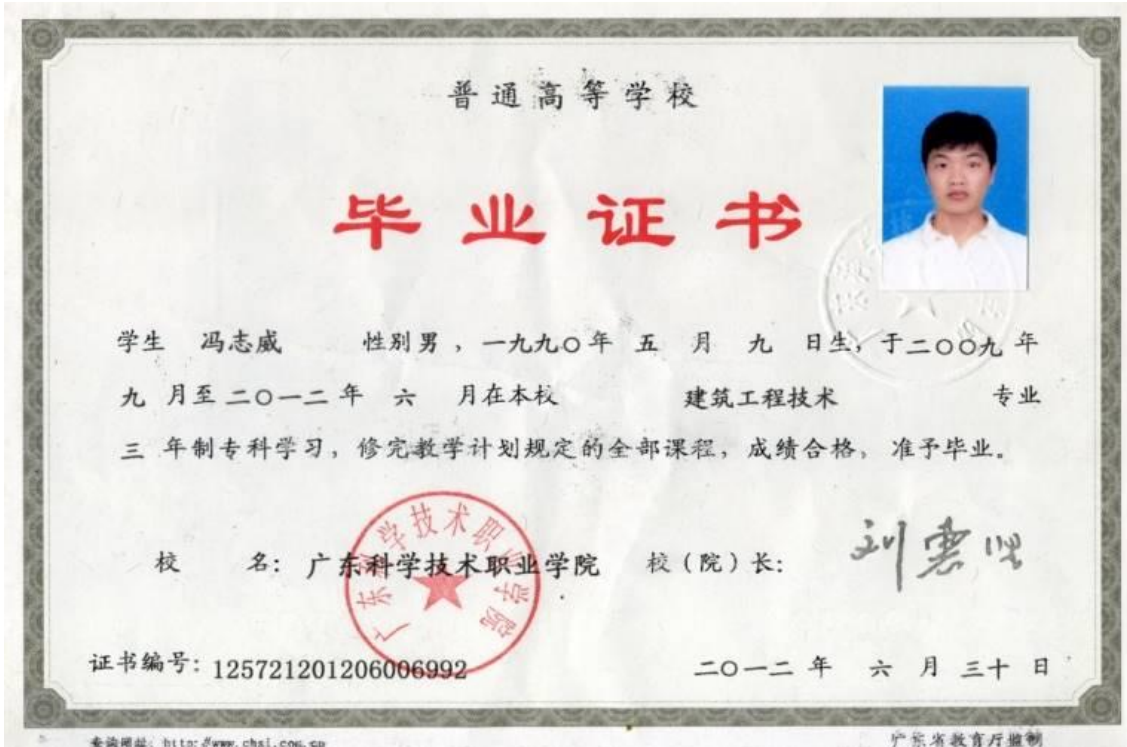 普通高等学校
毕业证书
学生 冯志威 性别男，一九九〇年 五 月 九 日生，于二〇〇九 年
九 月至二〇一二年 六 月在本校 建筑工程技术 专业
三 年制专科学习，修完教学计划规定的全部课程，成绩合格，准予毕业。
校 名：广东科学技术职业学院 校（院）长：
广东科学技术职业学院
证书编号：125721201206006992 二〇一二 年 六 月 三十 日
查询网址：http://www.chsi.com.cn 广东省教育厅监制